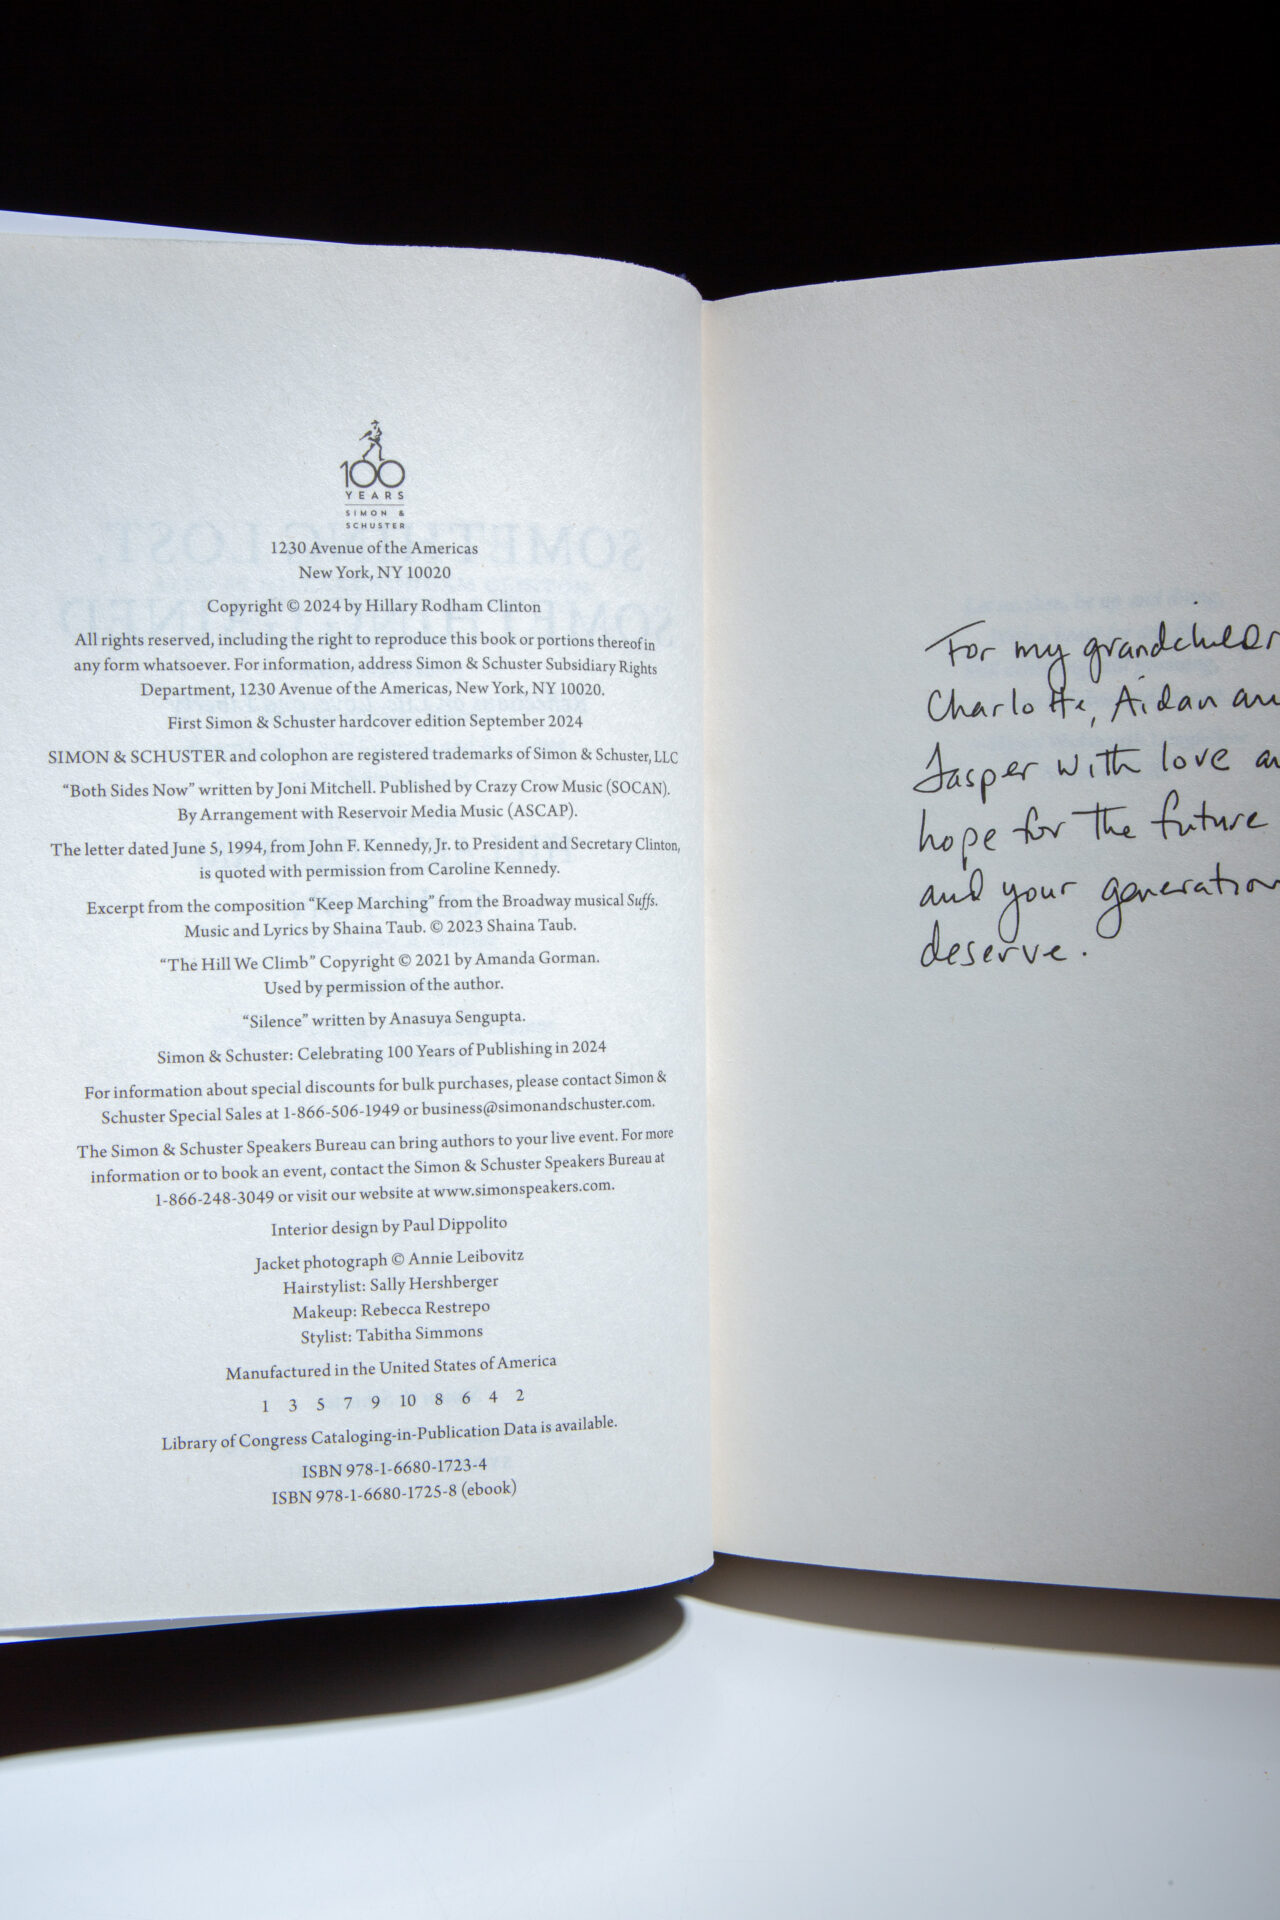 100
YEARS
SIMON &
SCHUSTER
1230 Avenue of the Americas
New York, NY 10020
Copyright © 2024 by Hillary Rodham Clinton
All rights reserved, including the right to reproduce this book or portions thereof in
any form whatsoever. For information, address Simon & Schuster Subsidiary Rights
Department, 1230 Avenue of the Americas, New York, NY 10020.
First Simon & Schuster hardcover edition September 2024
SIMON & SCHUSTER and colophon are registered trademarks of Simon & Schuster, LLC
“Both Sides Now” written by Joni Mitchell. Published by Crazy Crow Music (SOCAN).
By Arrangement with Reservoir Media Music (ASCAP).
The letter dated June 5, 1994, from John F. Kennedy, Jr. to President and Secretary Clinton,
is quoted with permission from Caroline Kennedy.
Excerpt from the composition “Keep Marching” from the Broadway musical Suffs.
Music and Lyrics by Shaina Taub. © 2023 Shaina Taub.
“The Hill We Climb” Copyright © 2021 by Amanda Gorman.
Used by permission of the author.
“Silence” written by Anasuya Sengupta.
Simon & Schuster: Celebrating 100 Years of Publishing in 2024
For information about special discounts for bulk purchases, please contact Simon &
Schuster Special Sales at 1-866-506-1949 or business@simonandschuster.com.
The Simon & Schuster Speakers Bureau can bring authors to your live event. For more
information or to book an event, contact the Simon & Schuster Speakers Bureau at
1-866-248-3049 or visit our website at www.simonspeakers.com.
Interior design by Paul Dippolito
Jacket photograph © Annie Leibovitz
Hairstylist: Sally Hershberger
Makeup: Rebecca Restrepo
Stylist: Tabitha Simmons
Manufactured in the United States of America
1 3 5 7 9 10 8 6 4 2
Library of Congress Cataloging-in-Publication Data is available.
ISBN 978-1-6680-1723-4
ISBN 978-1-6680-1725-8 (ebook)
For my grandchildr
Charlotte, Aidan an
Jasper with love an
hope for the future
and your generation
deserve.